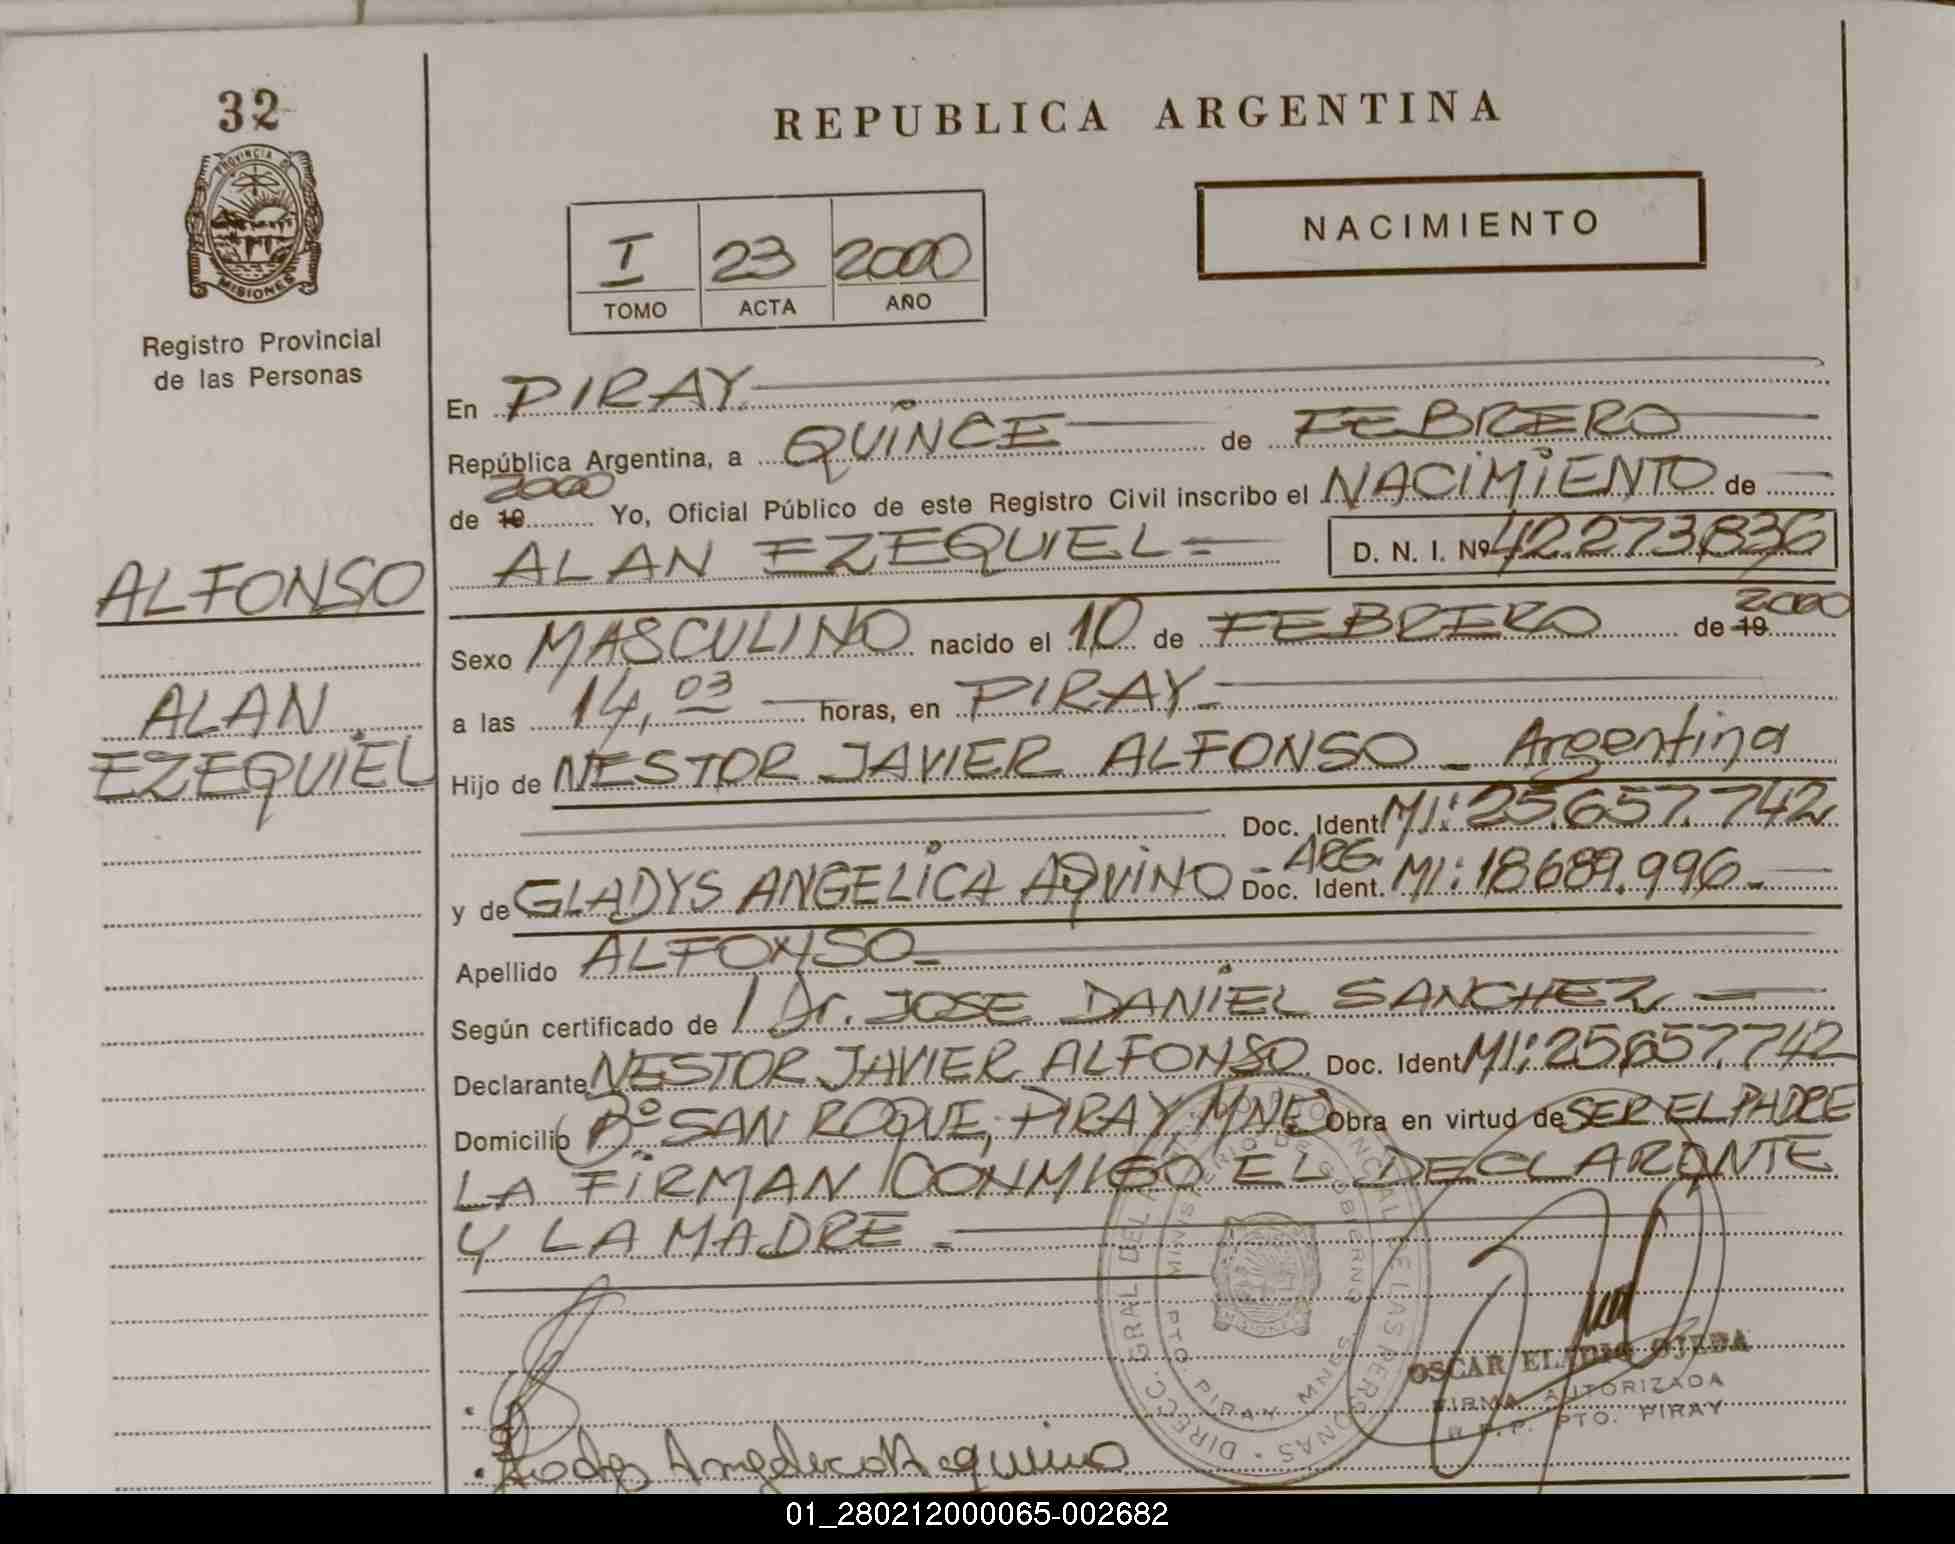 32
PROVINCIA DE
MISIONES
Registro Provincial
de las Personas
ALFONSO
ALAN
EZEQUIEL
REPUBLICA ARGENTINA
NACIMIENTO
I 23 2000
TOMO ACTA AÑO
En PIRAY
República Argentina, a QUINCE de FEBRERO
2000
de 19 Yo, Oficial Público de este Registro Civil inscribo el NACIMIENTO de
ALAN EZEQUIEL D. N. I. Nº 42.273.836
Sexo MASCULINO nacido el 10 de FEBRERO de 19 2000
a las 14,03 horas, en PIRAY
Hijo de NESTOR JAVIER ALFONSO - Argentina
Doc. Ident. MI: 25.657.742
y de GLADYS ANGELICA AQUINO - ARG. Doc. Ident. MI: 18.689.996
Apellido ALFONSO
Según certificado de Dr. JOSE DANIEL SANCHEZ
Declarante NESTOR JAVIER ALFONSO Doc. Ident MI: 25.657.742
Domicilio Bº SAN ROQUE, PIRAY, MNES Obra en virtud de SER EL PADRE
LA FIRMAN CONMIGO EL DECLARANTE
Y LA MADRE
DIRECC. GRAL DEL PROVINCIAL DE LAS PERSONAS
MINISTERIO DE GOBIERNO
PTO. PIRAY MNES.
OSCAR ELADIO OJEDA
FIRMA AUTORIZADA
PTO. PIRAY
Angelica Aquino
01_280212000065-002682